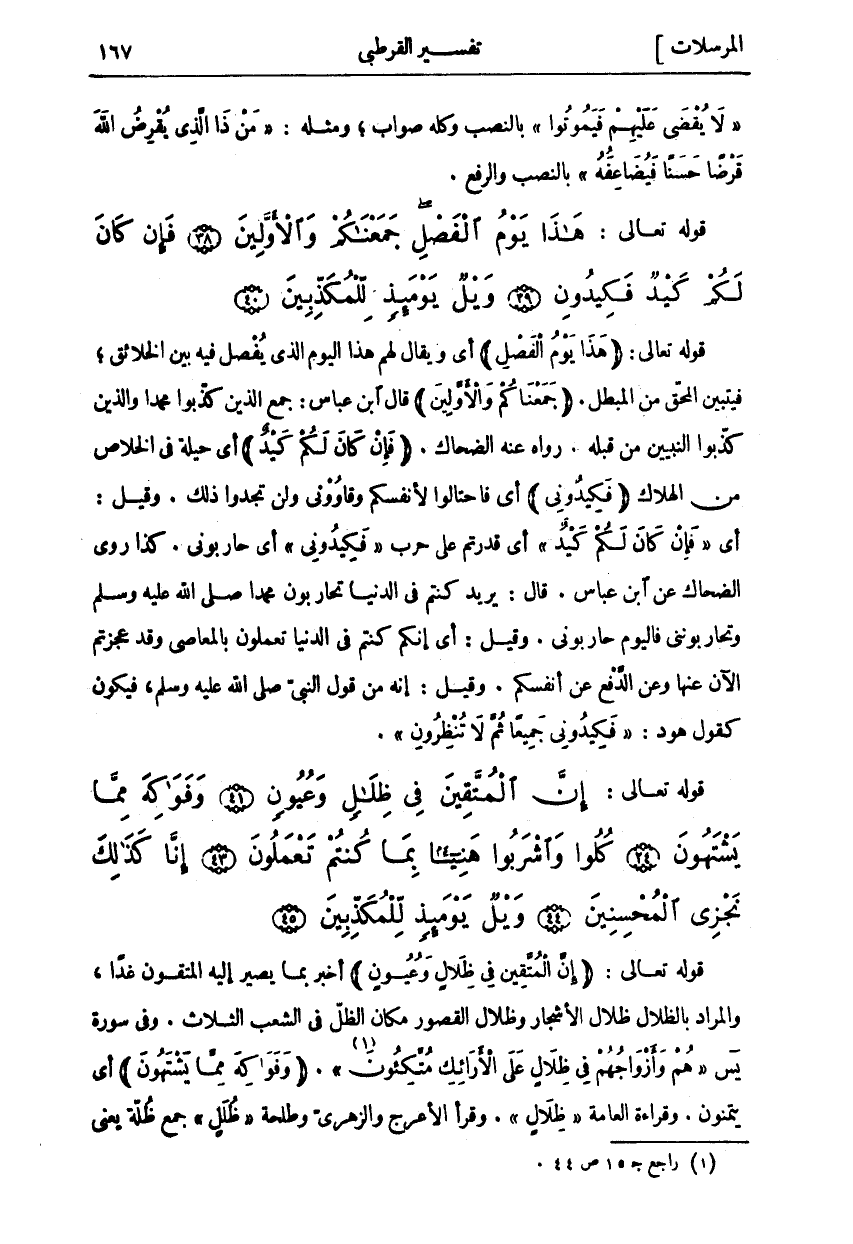 المرسلات ] تفسير القرطبى ١٦٧
« لَا يُقْضَى عَلَيْهِمْ فَيَمُوتُوا » بالنصب وكله صواب ؛ ومثله : « مَنْ ذَا الَّذِى يُقْرِضُ اللهَ
قَرْضًا حَسَنًا فَيُضَاعِفَُهُ » بالنصب والرفع .
قوله تعالى : هَٰذَا يَوْمُ ٱلْفَصْلِۖ جَمَعْنَٰكُمْ وَٱلْأَوَّلِينَ ٣٨ فَإِن كَانَ
لَكُمْ كَيْدٌ فَكِيدُونِ ٣٩ وَيْلٌ يَوْمَئِذٍ لِّلْمُكَذِّبِينَ ٤٠
قوله تعالى: ( هَذَا يَوْمُ ٱلْفَصْلِ ) أى ويقال لهم هذا اليوم الذى يُفْصل فيه بين الخلائق ؛
فيتبين المحقّ من المبطل. ( جَمَعْنَاكُمْ وَالْأَوَّلِينَ ) قال ٱبن عباس: جمع الذين كذّبوا محمدا والذين
كذّبوا النبيين من قبله . رواه عنه الضحاك . ( فَإِنْ كَانَ لَكُمْ كَيْدٌ ) أى حيلة فى الخلاص
من الهلاك ( فَكِيدُونِى ) أى فاحتالوا لأنفسكم وقاوُونى ولن تجدوا ذلك . وقيل :
أى « فَإِنْ كَانَ لَكُمْ كَيْدٌ » أى قدرتم على حرب « فَكِيدُونِى » أى حاربونى . كذا روى
الضحاك عن ٱبن عباس . قال : يريد كنتم فى الدنيا تحاربون محمدا صلى الله عليه وسلم
وتحاربوننى فاليوم حاربونى . وقيل : أى إنكم كنتم فى الدنيا تعملون بالمعاصى وقد عجزتم
الآن عنها وعن الدَّفْع عن أنفسكم . وقيل : إنه من قول النبىّ صلى الله عليه وسلم، فيكون
كقول هود : « فَكِيدُونِى جَمِيعًا ثُمَّ لَا تُنْظِرُونِ » .
قوله تعالى : إِنَّ ٱلْمُتَّقِينَ فِى ظِلَٰلٍ وَعُيُونٍ ٤١ وَفَوَٰكِهَ مِمَّا
يَشْتَهُونَ ٤٢ كُلُوا وَٱشْرَبُوا هَنِيٓـًٔا بِمَا كُنتُمْ تَعْمَلُونَ ٤٣ إِنَّا كَذَٰلِكَ
نَجْزِى ٱلْمُحْسِنِينَ ٤٤ وَيْلٌ يَوْمَئِذٍ لِّلْمُكَذِّبِينَ ٤٥
قوله تعالى : ( إِنَّ الْمُتَّقِين فِى ظِلَالٍ وَعُيُونٍ ) أخبر بما يصير إليه المتقون غدًا ،
والمراد بالظلال ظلال الأشجار وظلال القصور مكان الظلّ فى الشعب الثلاث . وفى سورة
يَس « هُمْ وَأَزْوَاجُهُمْ فِى ظِلَالٍ عَلَى الْأَرَائِكِ مُتَّكِئُونَ (١) » . ( وَفَوَاكِهَ مِمَّا يَشْتَهُونَ ) أى
يتمنون . وقراءة العامة « ظِلَالٍ » . وقرأ الأعرج والزهرىّ وطلحة « ظُلَلٍ » جمع ظُلّة يعنى
(١) راجع ج ١٥ ص ٤٤ .